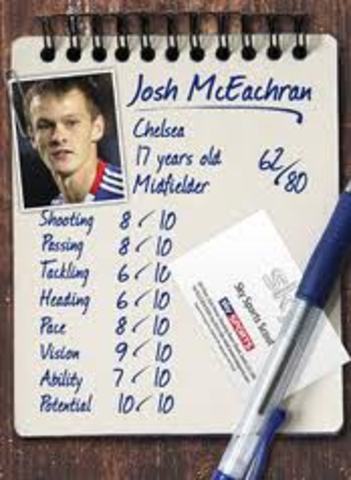 Josh McEachran
Chelsea
17 years old
Midfielder
62/80
Shooting 8/10
Passing 8/10
Tackling 6/10
Heading 6/10
Pace 8/10
Vision 9/10
Ability 7/10
Potential 10/10
Sky Sports Scout
sky SPORTS